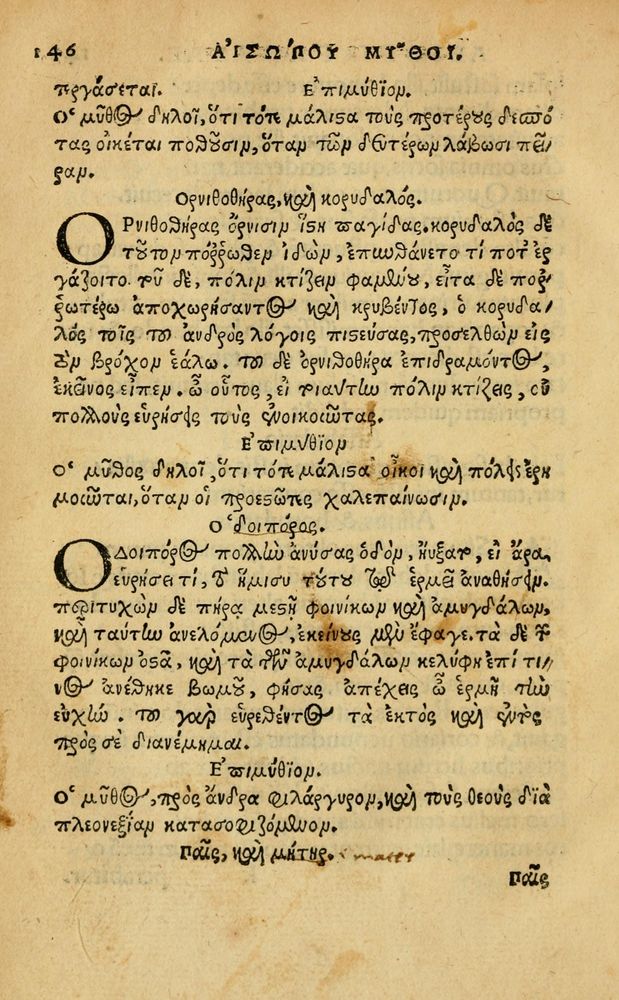 146 ΑΙΣΩΠΟΥ ΜΥΘΟΙ.
περγάσεται. Ἐπιμύθιον.
Ὁ μῦθος δηλοῖ, ὅτι τότε μάλιστα τοὺς προτέρους δεσπό
τας οἰκέται ποθοῦσιν, ὅταν τῶν δευτέρων λάβωσι πεῖ
ραν.
Ορνιθοθήρας, καὶ κορυδαλός.
ΟΡνιθοθήρας ὄρνισιν ἵστη παγίδας. κορυδαλὸς δὲ
τοῦτον πόῤῥωθεν ἰδὼν, ἐπυνθάνετο τί ποτ' ἐρ
γάζοιτο. τοῦ δὲ, πόλιν κτίζειν φαμένου, εἶτα δὲ ποῤ
ῥωτέρω ἀποχωρήσαντος καὶ κρυβέντος, ὁ κορυδα/
λός τοῖς τοῦ ἀνδρὸς λόγοις πιστεύσας, προσελθὼν εἰς
τὸν βρόχον ἑάλω. τοῦ δὲ ὀρνιθοθήρα ἐπιδραμόντος,
ἐκεῖνος εἶπεν. ὦ οὗτος, εἰ τοιαύτην πόλιν κτίζεις, οὐ
πολλοὺς εὑρήσεις τοὺς ἐνοικοῦντας.
Ἐπιμύθιον
Ὁ μῦθος δηλοῖ, ὅτι τότε μάλιστα οἶκοι καὶ πόλεις ἐρη
μοῦνται, ὅταν οἱ προεστῶτες χαλεπαίνωσιν.
Ὁδοιπόρος.
ΟΔοιπόρος πολλὴν ἀνύσας ὁδὸν, ηὔξατο, εἰ ἄρα
εὑρήσει τί, τὸ ἥμισυ τούτου τῷ ἑρμῇ ἀναθήσειν.
περιτυχὼν δὲ πήρᾳ μεστῇ φοινίκων καὶ ἀμυγδάλων,
καὶ ταύτην ἀνελόμενος, ἐκείνους μὲν ἔφαγε. τὰ δὲ τῶν
φοινίκων ὀστᾶ, καὶ τὰ τῶν ἀμυγδάλων κελύφη ἐπί τι/
νος ἀνέθηκε βωμοῦ, φήσας ἀπέχεις ὦ ἑρμῆ τὴν
εὐχήν. τοῦ γὰρ εὑρεθέντος τὰ ἐκτὸς καὶ ἐντὸς
πρὸς σὲ διανέμημαι.
Ἐπιμύθιον.
Ὁ μῦθος, πρὸς ἄνδρα φιλάργυρον, καὶ τοὺς θεοὺς διὰ
πλεονεξίαν κατασοφιζόμενον.
Παῖς, καὶ μήτηρ.
Παῖς